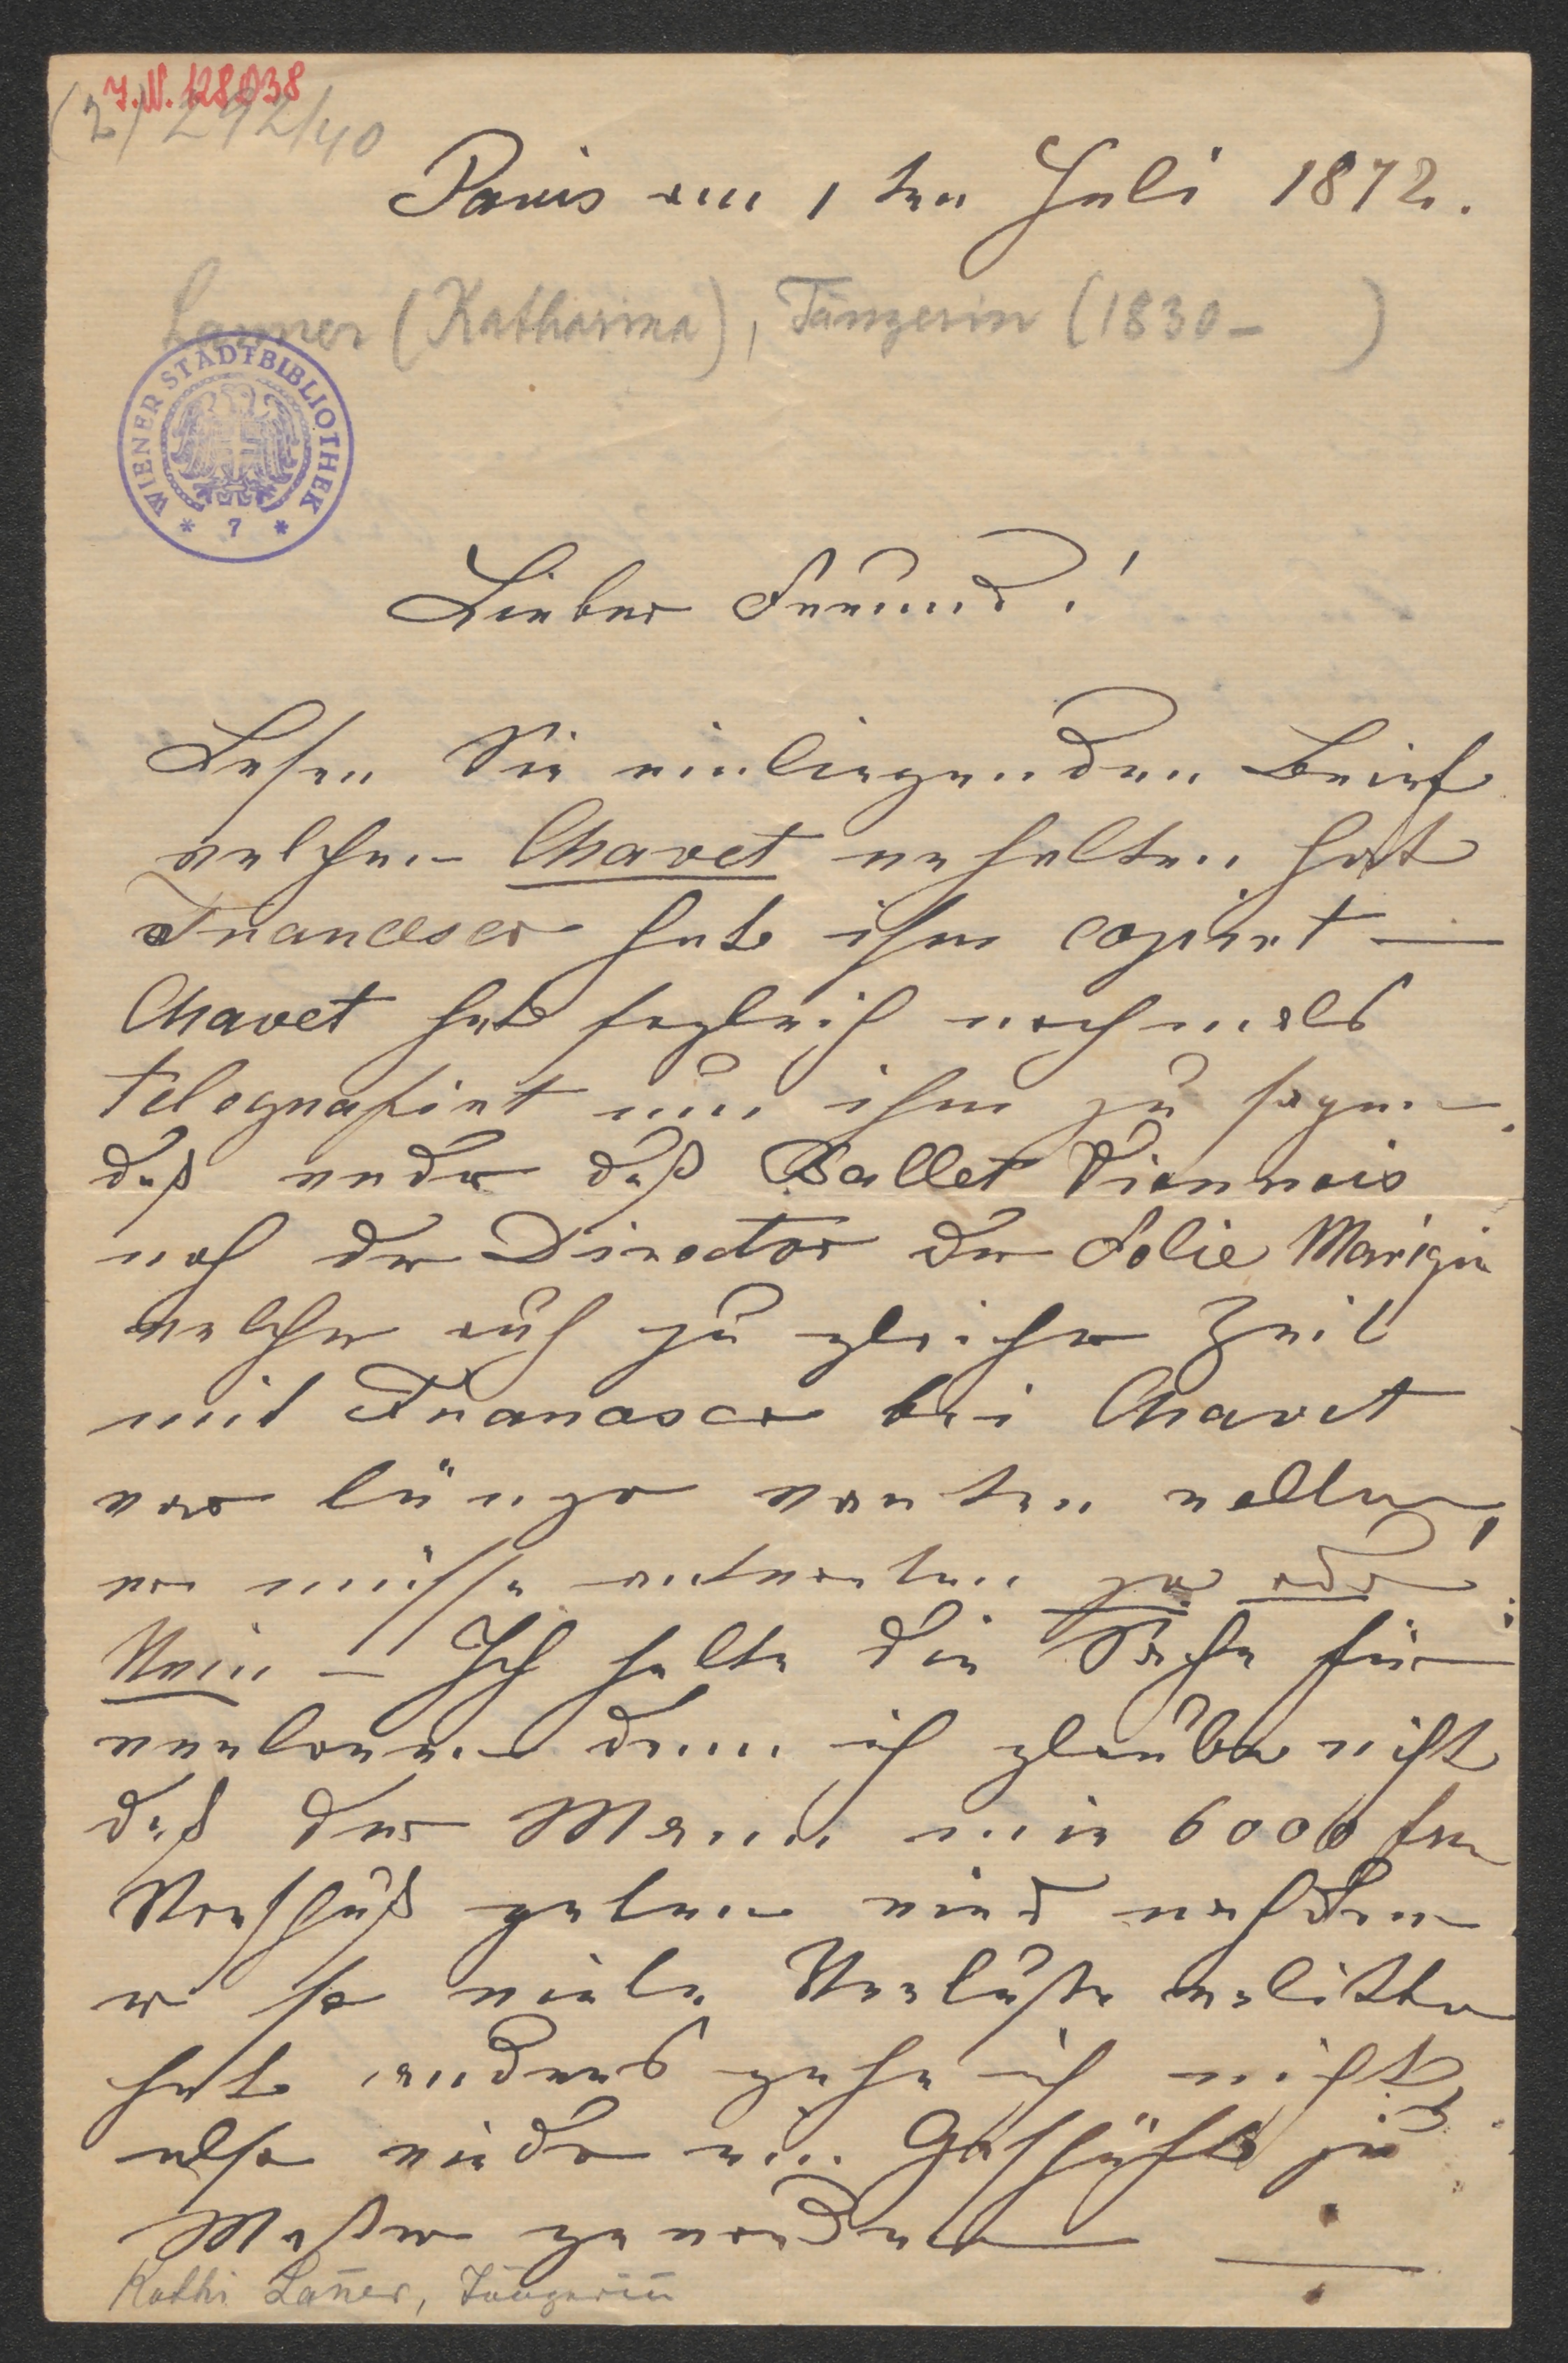 J.N. 128038
(2) 292/40
Paris am 1 ten Juli 1872.
Lanner (Katharina), Tänzerin (1830- )
WIENER STADTBIBLIOTHEK
* 7 *
Lieber Freund!
Lesen Sie einliegenden Brief
welchen Chavet erhalten hat
Francesco hat ihm copirt —
Chavet hat sogleich nochmals
telegrafirt um ihm zu sagen
daß weder daß Ballet Viennois
noch der Director der Folie Marigni
welcher auch zu gleicher Zeit
mit Francesco bei Chavet
war länger warten wollen,
er müsse antworten ja oder
Nein – Ich halte die Sache für
verloren denn ich glaube nicht
daß der Mann mir 6000 frn
Vorschuß geben wird nachdem
er so viele Verluste erlitten
hat anders gehe ich nicht,
also wieder ein Geschäft zu
Waßer geworden —
Kathi Lanner, Tänzerin